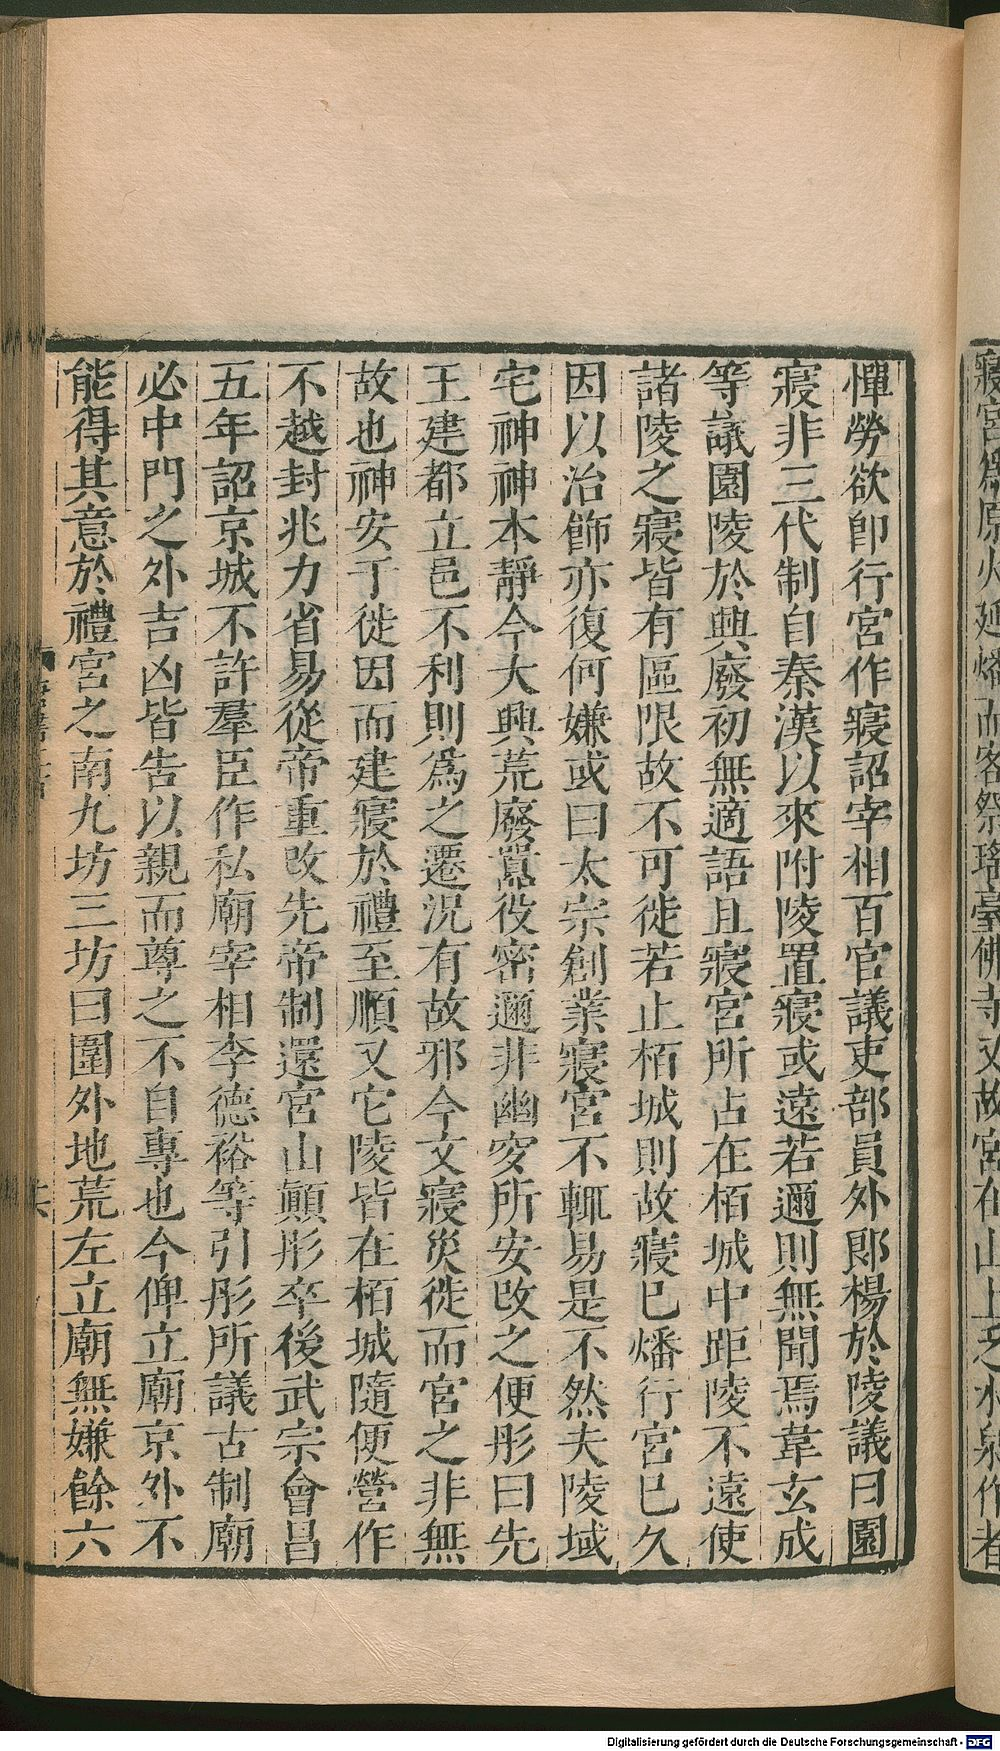 寢宮爲原火延燔而客祭瑤臺佛寺又故宮在山上乏水泉作者
憚勞欲卽行宮作寢詔宰相百官議吏部員外郎楊於陵議曰園
寢非三代制自秦漢以來附陵置寢或遠若邇則無聞焉韋玄成
等議園陵於興廢初無適語且寢宮所占在栢城中距陵不遠使
諸陵之寢皆有區限故不可徙若止栢城則故寢已燔行宮已久
因以治飾亦復何嫌或曰太宗創業寢宮不輒易是不然夫陵域
宅神神本靜今大興荒廢囂役密邇非幽窔所安改之便彤曰先
王建都立邑不利則爲之遷況有故邪今文寢災徙而宮之非無
故也神安于徙因而建寢於禮至順又它陵皆在栢城隨便營作
不越封兆力省易從帝重改先帝制還宮山顚彤卒後武宗會昌
五年詔京城不許羣臣作私廟宰相李德裕等引彤所議古制廟
必中門之外吉凶皆告以親而尊之不自專也今俾立廟京外不
能得其意於禮宮之南九坊三坊曰圍外地荒左立廟無嫌餘六
Digitalisierung gefördert durch die Deutsche Forschungsgemeinschaft - DFG